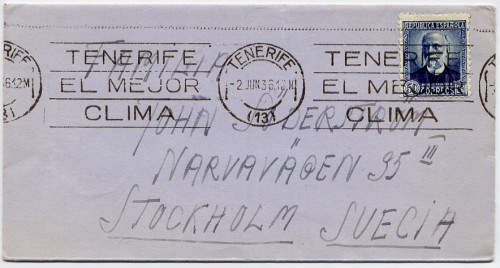 TENERIFE
EL MEJOR
CLIMA
TENERIFE
-2 JUN 36.12M
(13)
TENERIFE
EL MEJOR
CLIMA
REPUBLICA ESPAÑOLA
CORREOS
FAMILIA
JOHN SÖDERSTRÖM
NARVAVÄGEN 35 III
STOCKHOLM SUECIA